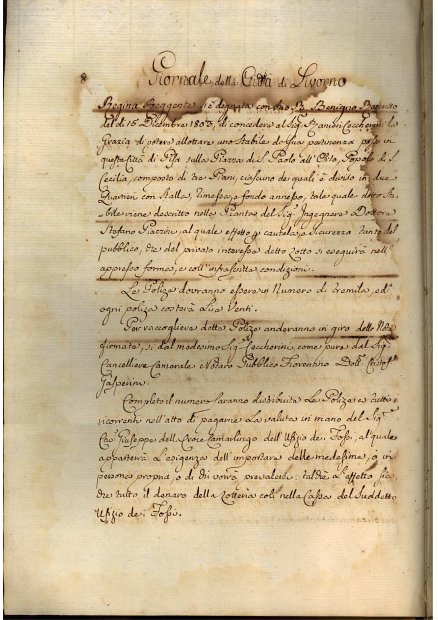 8 Giornale della Città di Livorno
Regina Reggente si è degnata con suo B. Benigno Rescritto
del dì 15. Dicembre 1803, di concedere al Sig. Ranieri Ceccherini la
Grazia di potere allottare uno Stabile di sua pertinenza posto in
questa Città di Pisa sulla Piazza di S. Paolo all'Orto, Popolo di S.
Cecilia, composto di tre Piani, ciascuno de quali è diviso in due
Quartieri con Stalla, Rimessa, e fondo annesso, tale quale detto Sta-
bile viene descritto nella Pianta del Sig. Ingegnere Dottore
Stefano Piazzini, al quale effetto a cautela, e sicurezza tanto del
pubblico, che del privato interesse detto Lotto si eseguirà nell'
appresso forma, e coll' infrascritte condizioni.
Le Polize dovranno essere in Numero di tremila, ed
ogni poliza costerà Lire Venti.
Per raccogliere dette Polize anderanno in giro delle Note
firmate, sì dal medesimo Sig. Ceccherini, come pure dal Sig.
Cancelliere Camerale Notaro Pubblico Fiorentino Dott. Cristof.
Gasperini.
Completo il numero saranno distribuite Le Polize a tutti i
ricorrenti nell'atto di pagarne La valuta in mano del Sig.
Cav. Giuseppe della Croce Camarlingo dell'Ufizio dei Fossi, al quale
apparterrà L'esigenza dell'importare delle medesime, o in
persona propria, o di chi vorrà prevalersi, talchè a L'effetto sia
che tutto il denaro della Lotteria coli nella Cassa del Suddetto
Ufizio dei Fossi.